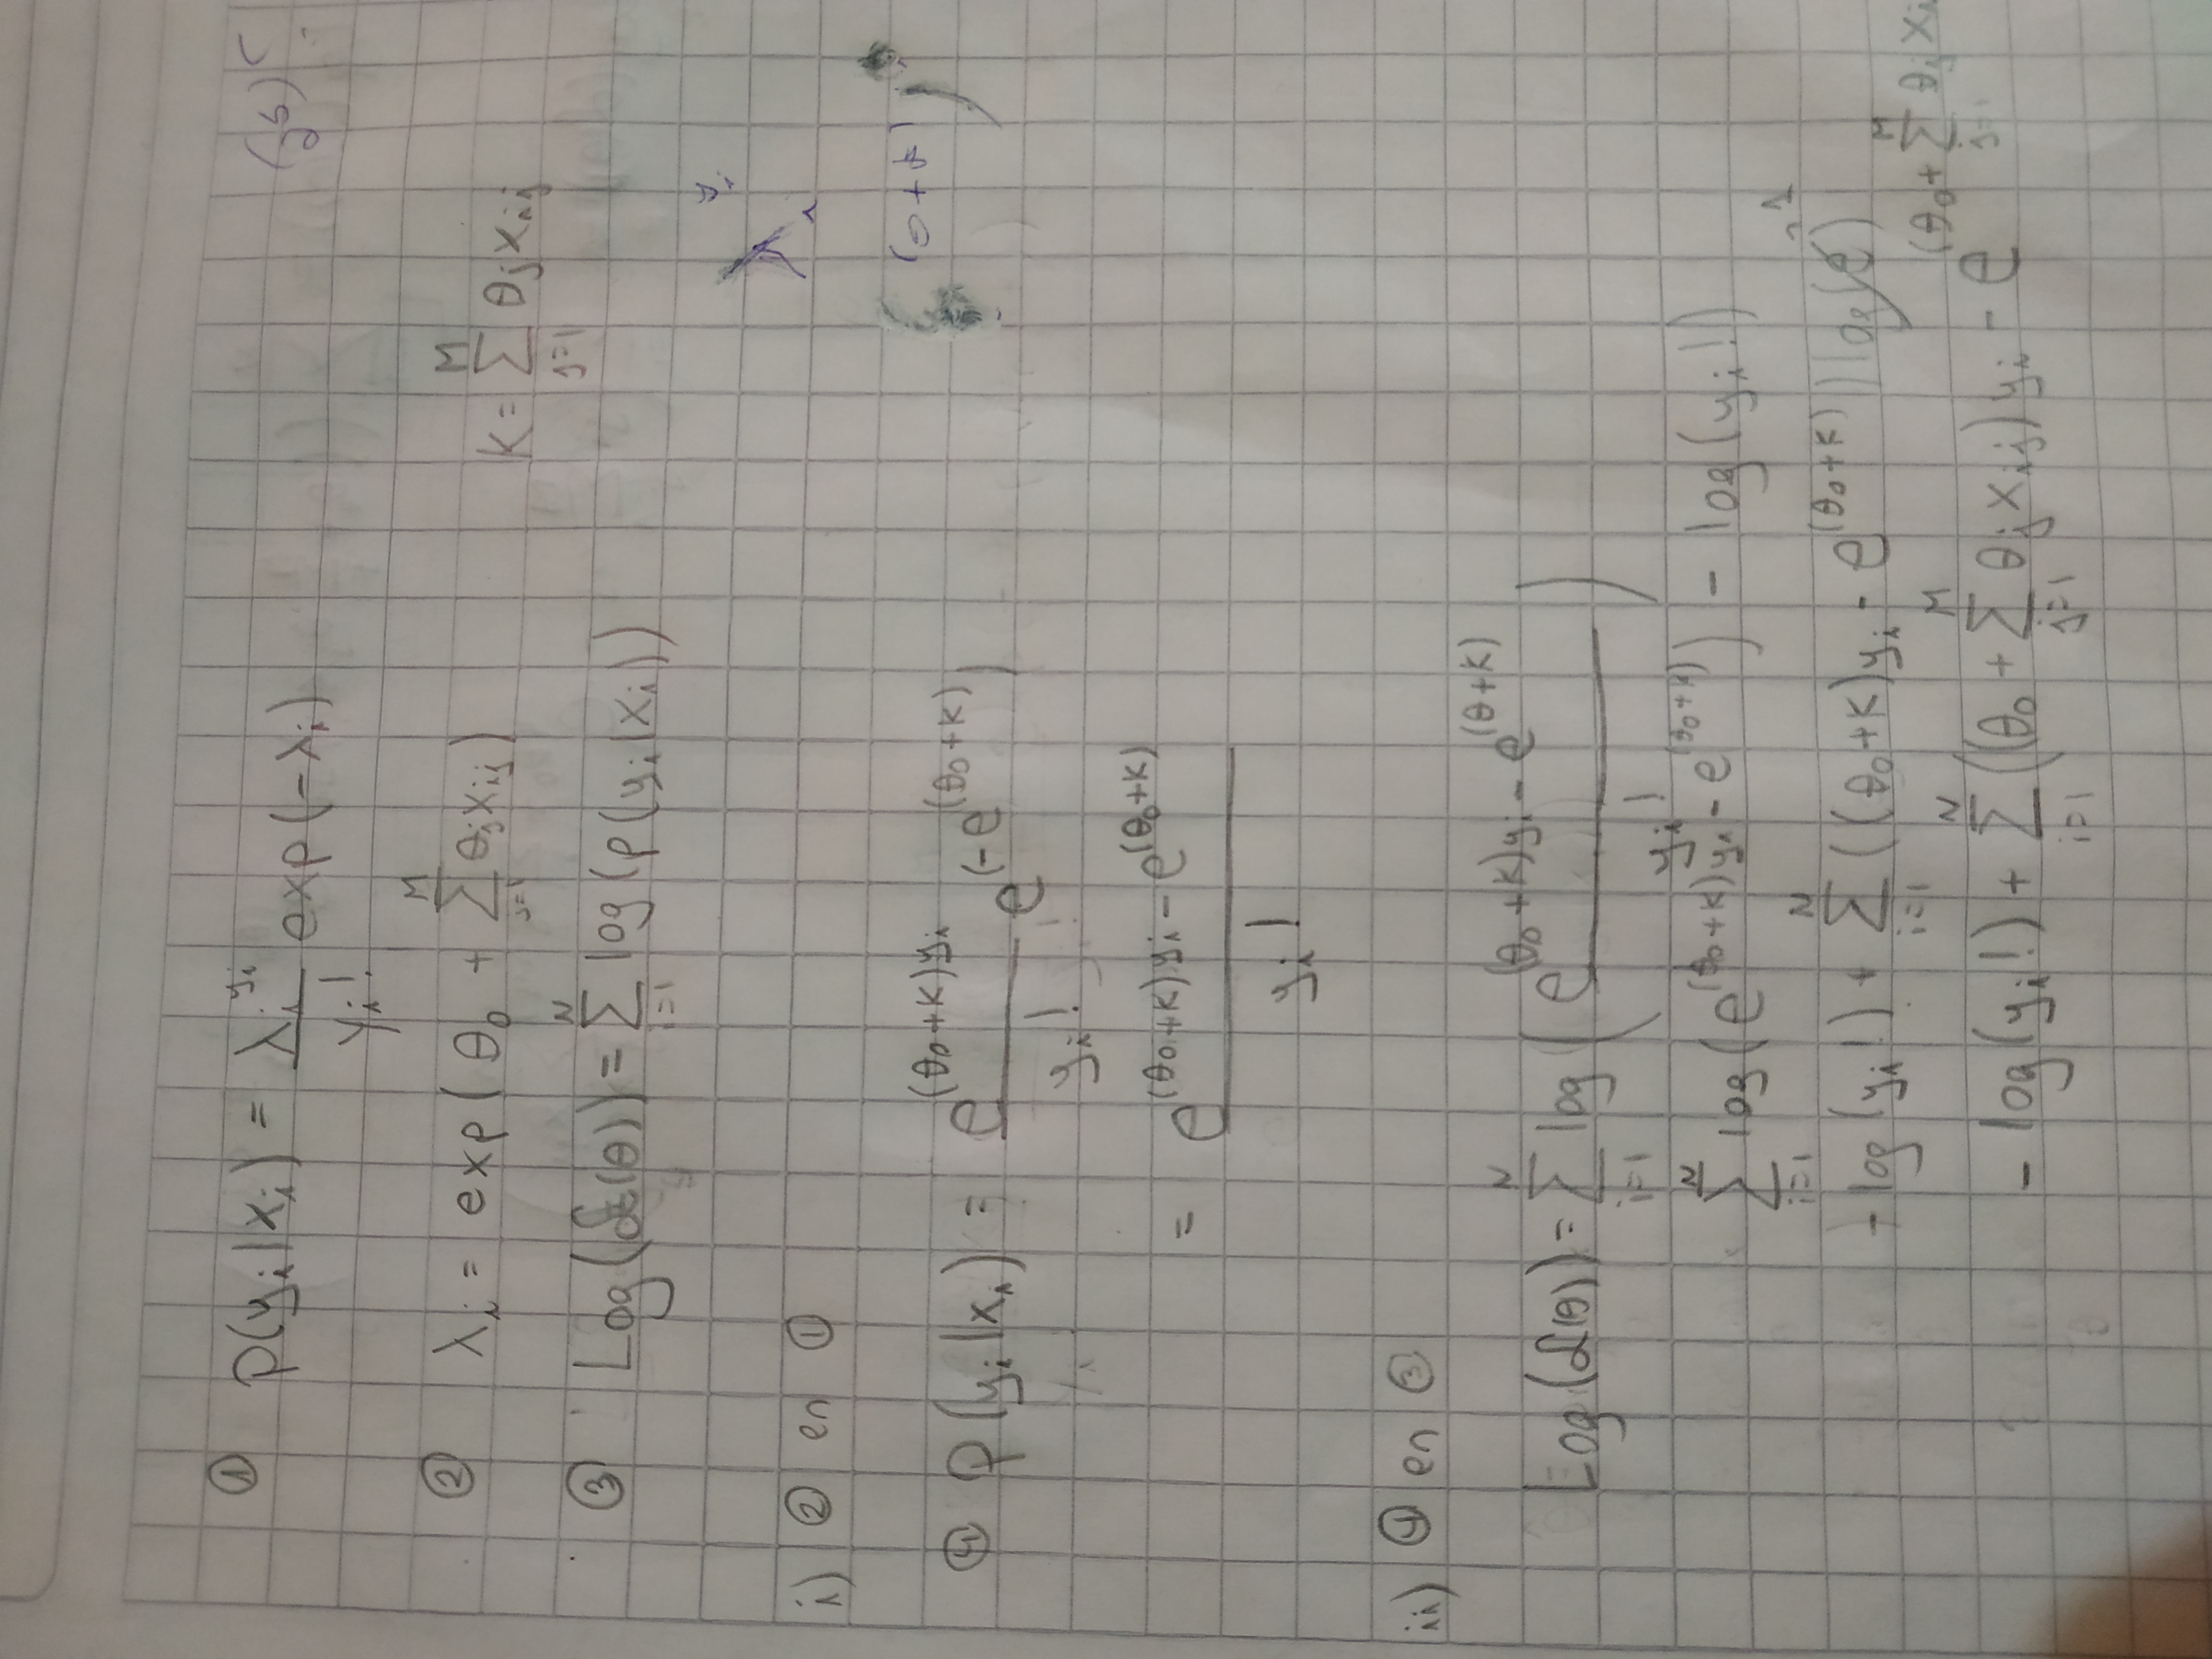 ① P(yᵢ|xᵢ) = λᵢ^yᵢ / yᵢ! exp(-λᵢ)
② λᵢ = exp(θ₀ + Σ_{j=1}^{M} θⱼxᵢⱼ) K = Σ_{j=1}^{M} θⱼxᵢⱼ
③ Log(ℒ(θ)) = Σ_{i=1}^{N} log(p(yᵢ|xᵢ))
λᵢ^yᵢ
i) ② en ①
④ P(yᵢ|xᵢ) = e^{(θ₀+K)yᵢ} / yᵢ! e^{(-e^{(θ₀+K)})}
= e^{(θ₀+K)yᵢ - e^{(θ₀+K)}} / yᵢ!
ii) ④ en ③
Log(ℒ(θ)) = Σ_{i=1}^{N} log( e^{(θ₀+K)yᵢ - e^{(θ+K)}} / yᵢ! )
Σ_{i=1}^{N} log(e^{(θ₀+K)yᵢ - e^{(θ₀+K)}}) - log(yᵢ!)
- log(yᵢ!) + Σ_{i=1}^{N} ((θ₀+K)yᵢ - e^{(θ₀+K)}) log(e) 1
- log(yᵢ!) + Σ_{i=1}^{N} ((θ₀ + Σ_{j=1}^{M} θⱼxᵢⱼ)yᵢ - e^{(θ₀+Σ_{j=1}^{M} θⱼxᵢ